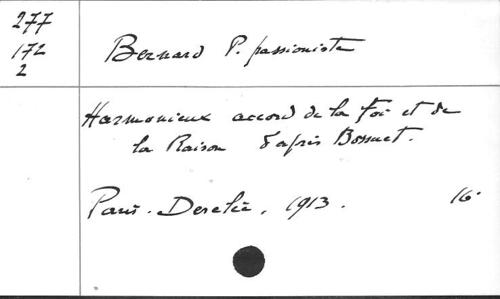 277
172
2
Bernard P. passioniste
Harmonieux accord de la foi et de
la Raison d'après Bossuet.
Paris. Desclée, 1913. 16°